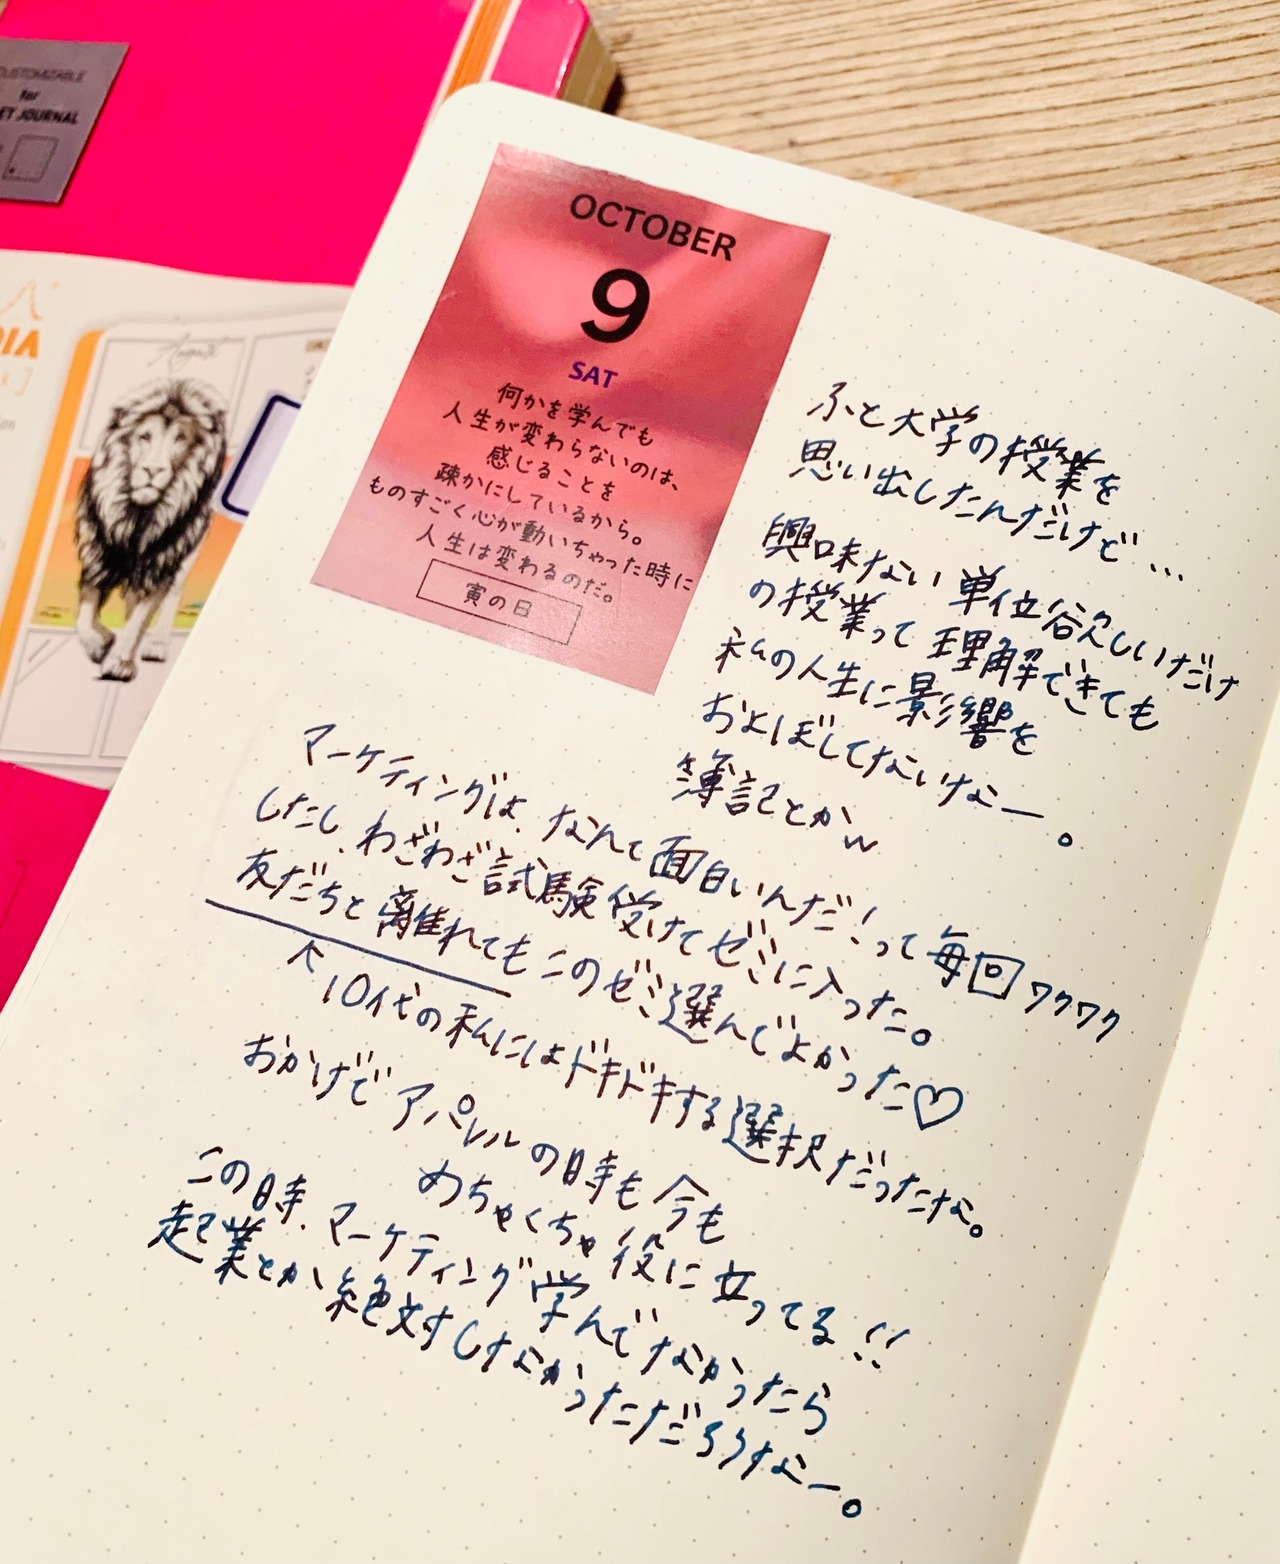 CUSTOMIZABLE
for
ET JOURNAL
August
OCTOBER
9
SAT
何かを学んでも
人生が変わらないのは、
感じることを
疎かにしているから。
ものすごく心が動いちゃった時に
人生は変わるのだ。
寅の日
ふと大学の授業を
思い出したんだけど…
興味ない単位欲しいだけ
の授業って理解できても
私の人生に影響を
およぼしてないなー。
簿記とかw
マーケティングは、なんて面白いんだ!って毎回ワクワク
したし、わざわざ試験受けてゼミに入った。
友だちと離れてもこのゼミ選んでよかった♡
↑10代の私にはドキドキする選択だったな。
おかげでアパレルの時も今も
めちゃくちゃ役に立ってる!!
この時、マーケティング学んでなかったら
起業とか絶対しなかっただろうなー。